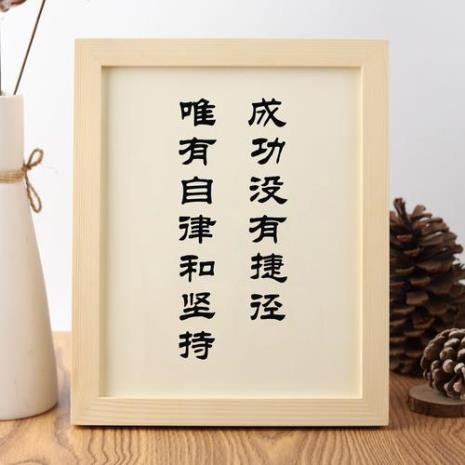 成功没有捷径
唯有自律和坚持